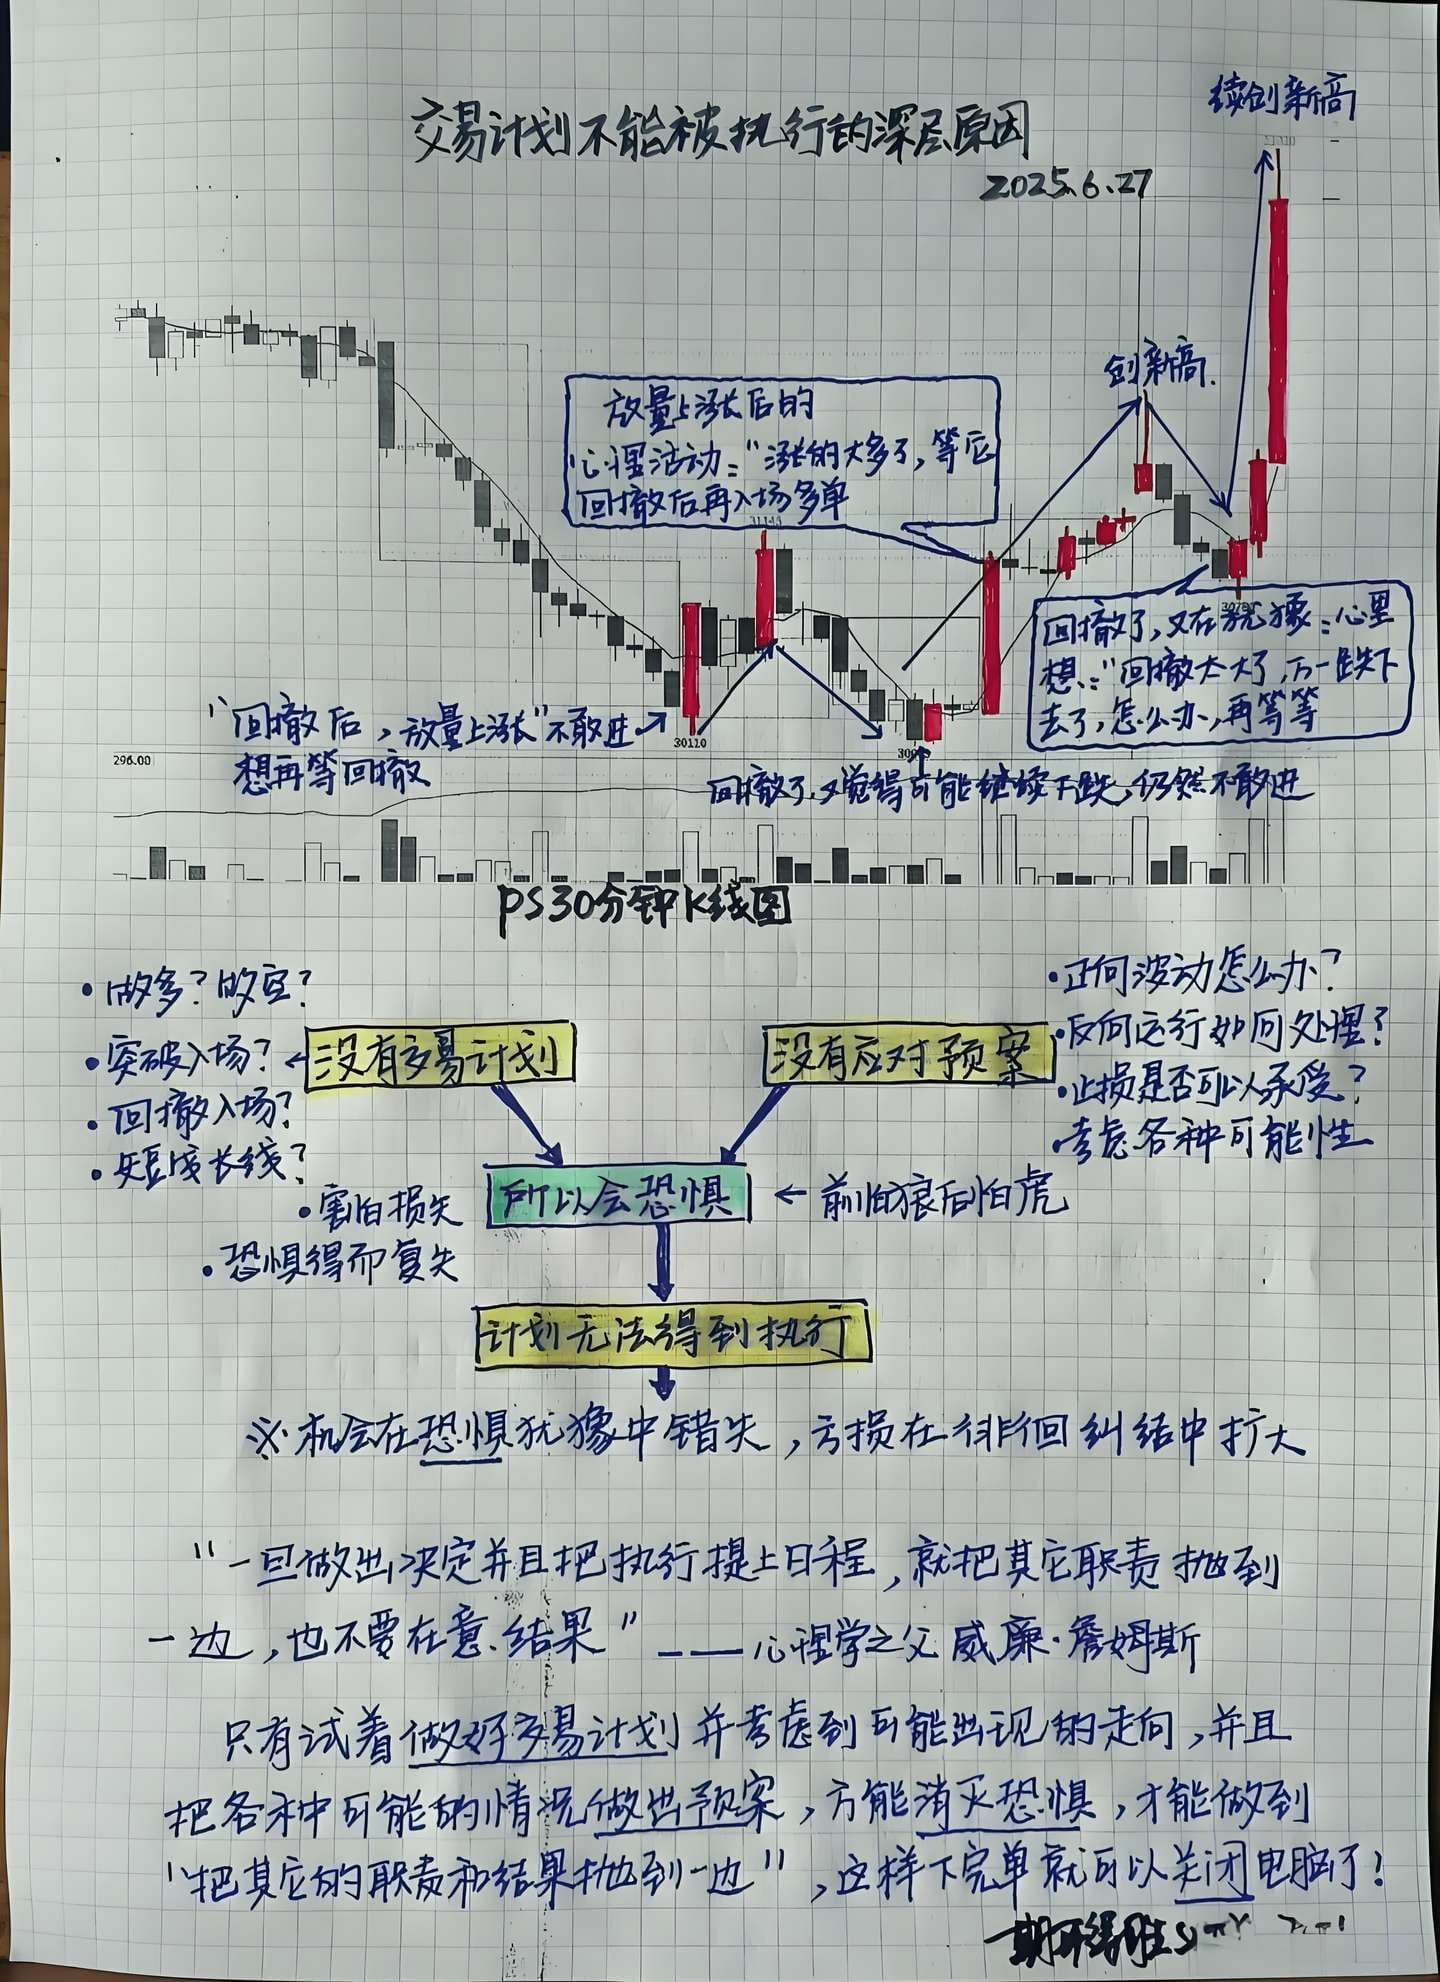 续创新高
交易计划不能被执行的深层原因
2025.6.27
创新高.
放量上涨后的
心理活动:“涨的太多了，等它
回撤后再入场多单
回撤了,又在犹豫:心里
想:“回撤太大了,万一跌下
去了,怎么办,再等等
“回撤后，放量上涨”不敢进→
想再等回撤
30110
296.00
回撤了,又觉得可能继续下跌,仍然不敢进
PS30分钟K线图
·做多?做空?
·突破入场?
·回撤入场?
·短或长线?
没有交易计划
没有应对预案
·正向波动怎么办?
·反向运行如何处理?
·止损是否可以承受?
·考虑各种可能性
·害怕损失
·恐惧得而复失
所以会恐惧
←前怕狼后怕虎
计划无法得到执行
※机会在恐惧犹豫中错失，亏损在徘徊纠结中扩大
“一旦做出决定并且把执行提上日程，就把其它职责抛到
一边，也不要在意结果”——心理学之父 威廉·詹姆斯
只有试着做好交易计划并考虑到可能出现的走向，并且
把各种可能的情况做出预案，方能消灭恐惧，才能做到
“把其它的职责和结果抛到一边”，这样下完单就可以关闭电脑了!